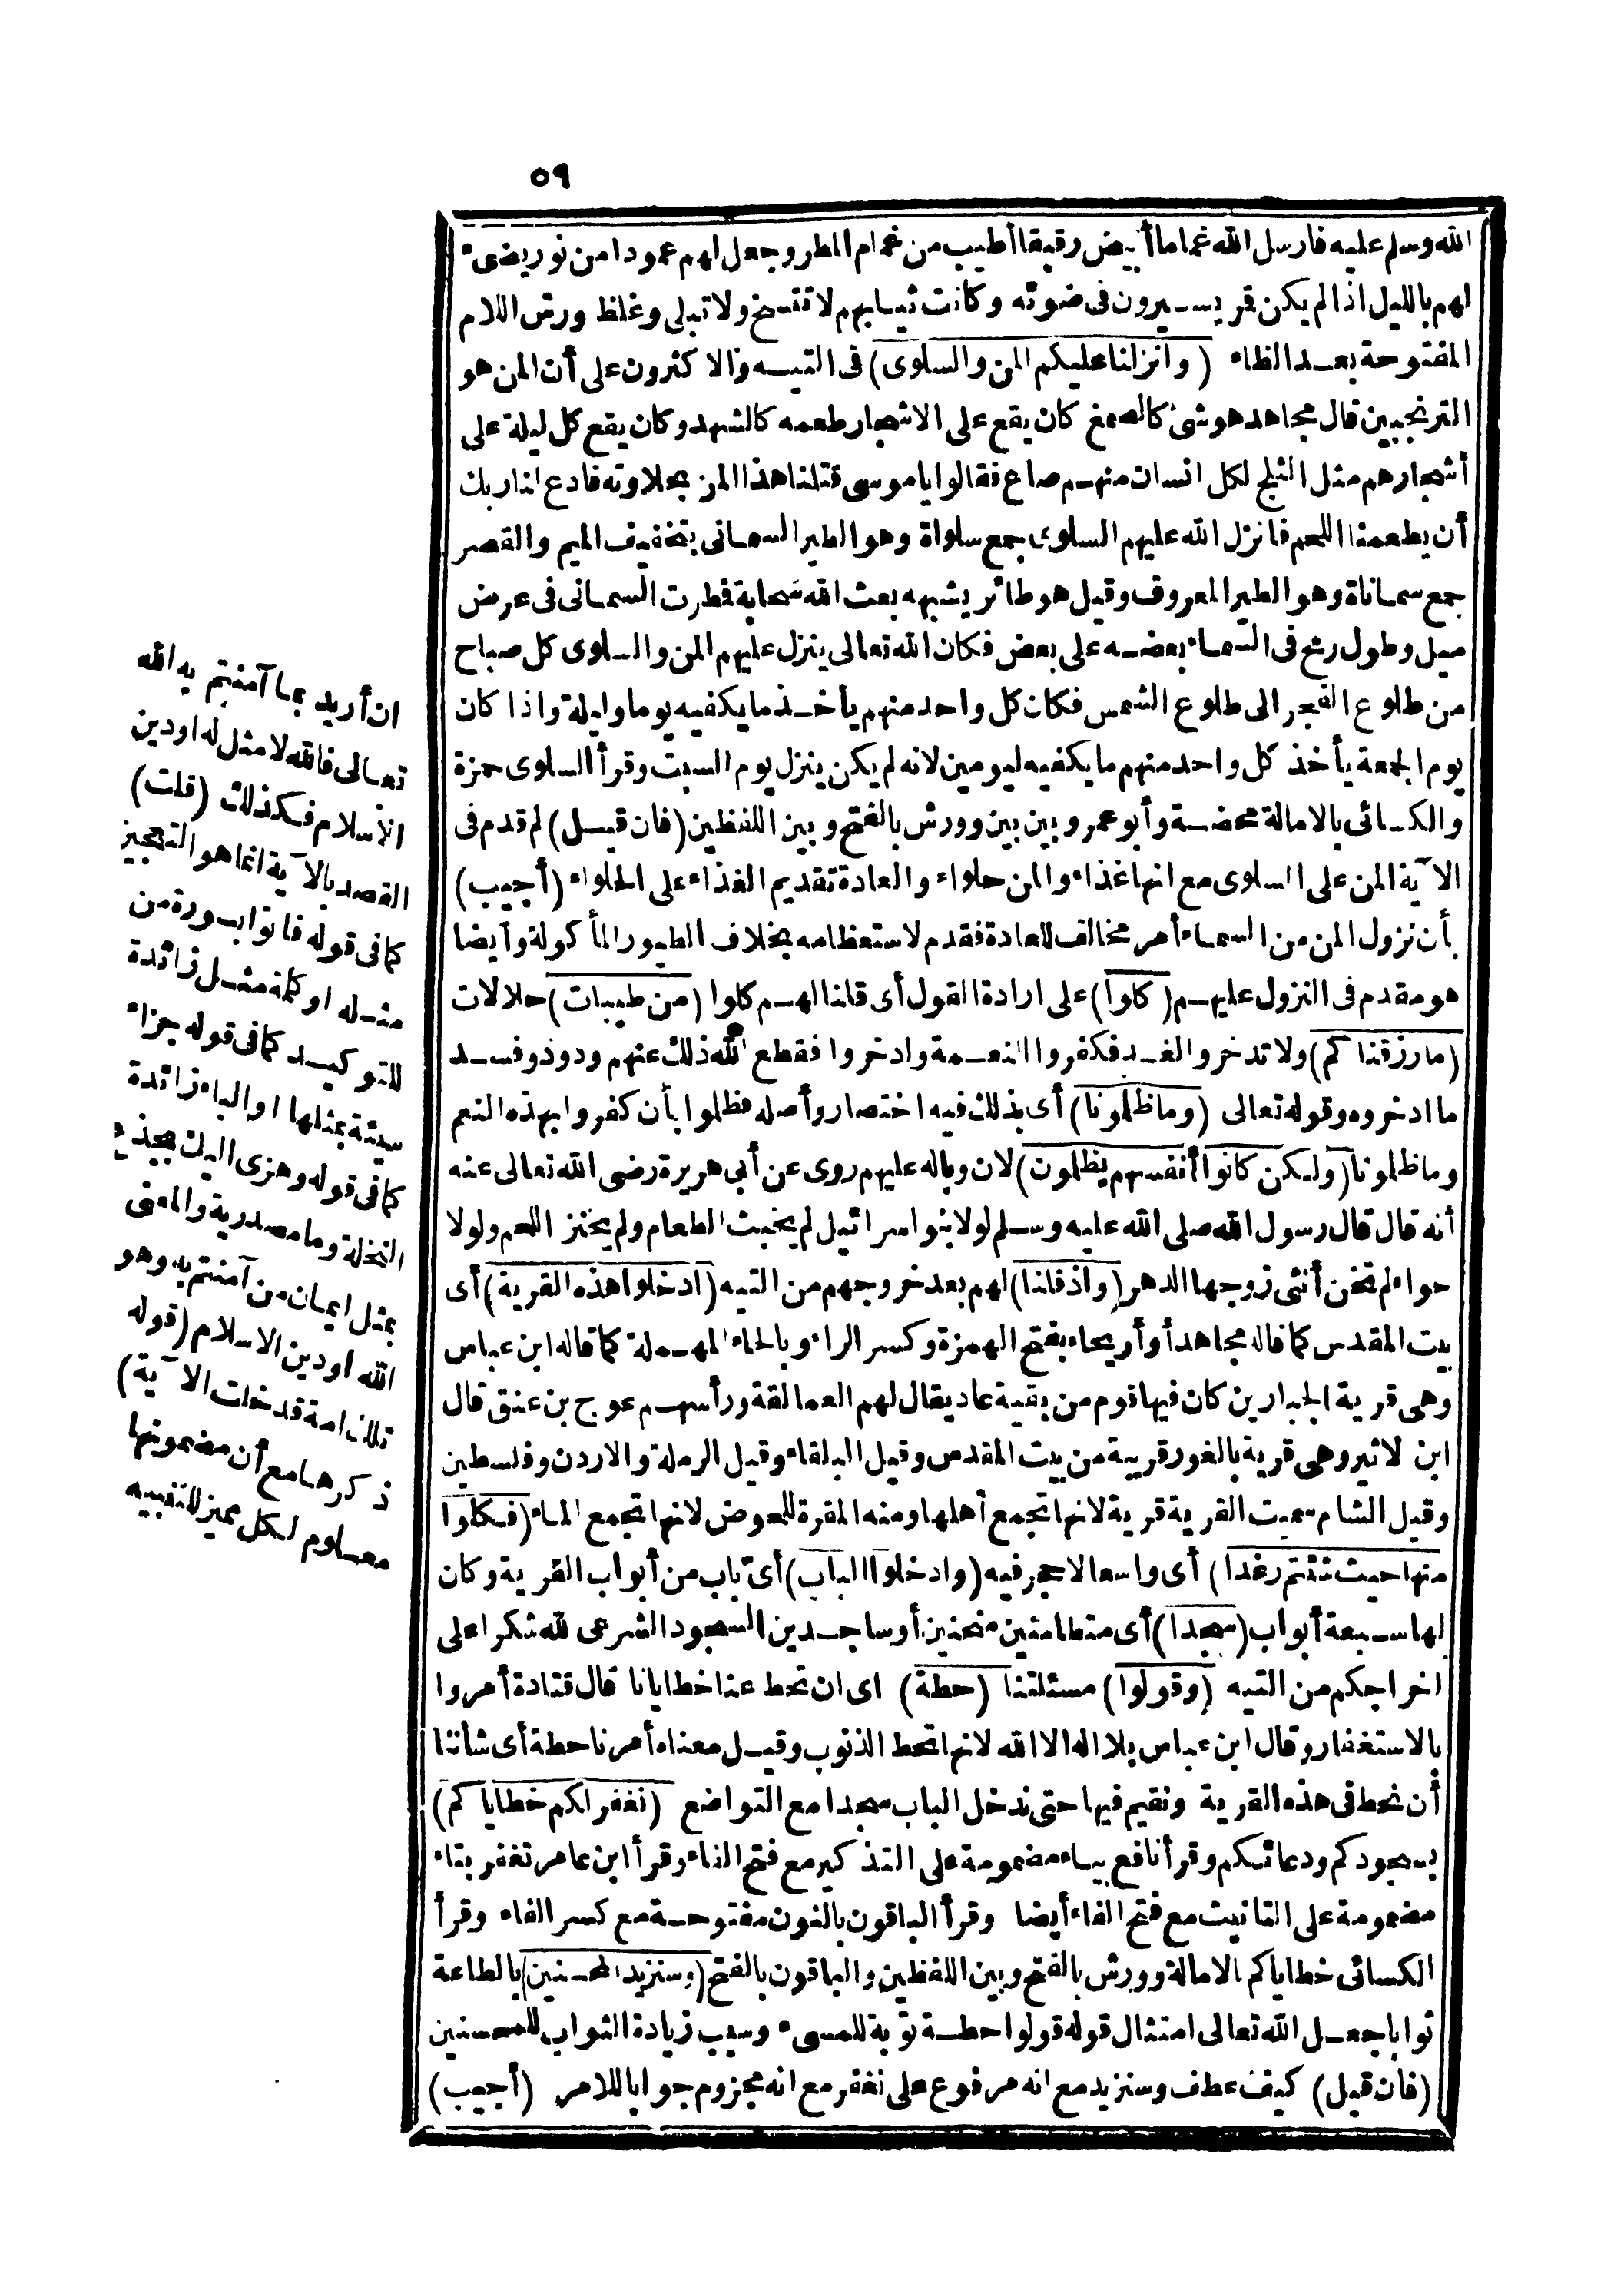 ٥٩
الله وسلم عليه فارسل الله غماما أبيض رقيقا أطيب من غمام المطر وجعل لهم عمودا من نور يضىء
لهم بالليل اذا لم يكن قر يسيرون فى ضوئه وكانت ثيابهم لا تتسخ ولا تبلى وغلظ ورش اللام
المفتوحة بعد الظاء (وانزلنا عليكم المن والسلوى) فى التيه والاكثرون على أن المن هو
الترنجبين قال مجاهد هو شئ كالصمغ كان يقع على الاشجار طعمه كالشهد وكان يقع كل ليلة على
أشجارهم مثل الثلج لكل انسان منهم صاع فقالوا يا موسى قتلنا هذا المن بحلاوته فادع لنا ربك
أن يطعمنا اللحم فانزل الله عليهم السلوى جمع سلواة وهو الطير السمانى بتخفيف الميم والقصر
جمع سماناة وهو الطير المعروف وقيل هو طائر يشبهه بعث الله سحابة فطرت السمانى فى عرض
ميل وطول رمح فى السماء بعضه على بعض فكان الله تعالى ينزل عليهم المن والسلوى كل صباح
من طلوع الفجر الى طلوع الشمس فكان كل واحد منهم يأخذ ما يكفيه يوما وليلة واذا كان
يوم الجمعة يأخذ كل واحد منهم ما يكفيه ليومين لانه لم يكن ينزل يوم السبت وقرأ السلوى حمزة
والكسائى بالامالة محضة وأبو عمرو بين بين وورش بالفتح وبين اللفظين (فان قيل) لم قدم فى
الآية المن على السلوى مع انها غذاء والمن حلواء والعادة تقديم الغذاء على الحلواء (أجيب)
بأن نزول المن من السماء أمر مخالف للعادة فقدم لاستعظامه بخلاف الطيور المأكولة وأيضا
هو مقدم فى النزول عليهم (كلوا) على ارادة القول أى قلنا لهم كلوا (من طيبات) حلالات
(ما رزقناكم) ولا تدخروا لغد فكفروا النعمة وادخروا فقطع الله ذلك عنهم ودود وفسد
ما ادخروه وقوله تعالى (وما ظلمونا) أى بذلك فيه اختصار وأصله فظلموا بأن كفروا بهذه النعم
وما ظلمونا (ولكن كانوا أنفسهم يظلمون) لان وباله عليهم روى عن أبى هريرة رضى الله تعالى عنه
أنه قال قال رسول الله صلى الله عليه وسلم لولا بنو اسرائيل لم يخبث الطعام ولم يخنز اللحم ولولا
حواء لم تخن أنثى زوجها الدهر (واذ قلنا) لهم بعد خروجهم من التيه (ادخلوا هذه القرية) أى
بيت المقدس كما قاله مجاهد أو أريحاء بفتح الهمزة وكسر الراء وبالحاء المهملة كما قاله ابن عباس
وهى قرية الجبارين كان فيها قوم من بقية عاد يقال لهم العمالقة ورأسهم عوج بن عنق قال
ابن لاثير وهى قرية بالغور قريبة من بيت المقدس وقيل البلقاء وقيل الرملة والاردن وفلسطين
وقيل الشام سميت القرية قرية لانها تجمع أهلها ومنه المقرة للحوض لانها تجمع الماء (فكلوا
منها حيث شئتم رغدا) أى واسعا لا حجر فيه (وادخلوا الباب) أى باب من أبواب القرية وكان
لها سبعة أبواب (سجدا) أى متطامنين منحنين أو ساجدين السجود الشرعى لله شكرا على
اخراجكم من التيه (وقولوا) مسئلتنا (حطة) اى ان تحط عنا خطايانا قال قتادة أمروا
بالاستغفار وقال ابن عباس بلا اله الا الله لانها تحط الذنوب وقيل معناه أمرنا حطة أى شأننا
أن نحط فى هذه القرية ونقيم فيها حتى ندخل الباب سجدا مع التواضع (نغفر لكم خطاياكم)
بسجودكم ودعائكم وقرأ نافع بياء مضمومة على التذكير مع فتح الفاء وقرأ ابن عامر تغفر بتاء
مضمومة على التأنيث مع فتح الفاء أيضا وقرأ الباقون بالنون مفتوحة مع كسر الفاء وقرأ
الكسائى خطاياكم بالامالة وورش بالفتح وبين اللفظين والباقون بالفتح (وسنزيد المحسنين) بالطاعة
ثوابا جعل الله تعالى امتثال قوله قولوا حطة توبة للمسىء وسبب زيادة الثواب للمحسنين
(فان قيل) كيف عطف وسنزيد مع انه مرفوع على نغفر مع انه مجزوم جوابا للامر (أجيب)
ان أريد بما آمنتم به الله
تعالى فالله لا مثل له او دين
الاسلام فكذلك (قلت)
القصد بالآية انما هو التعجيز
كما فى قوله فاتوا بسورة من
مثله او كلمة مثل زائدة
للتوكيد كما فى قوله جزاء
سيئة بمثلها او الباء زائدة
كما فى قوله وهزى اليك بجذع
النخلة وما مصدرية والمعنى
بمثل ايمان من آمنتم به وهو
الله او دين الاسلام (قوله
تلك امة قد خلت الآية)
ذكرها مع أن مضمونها
معلوم لكل مميز للتنبيه